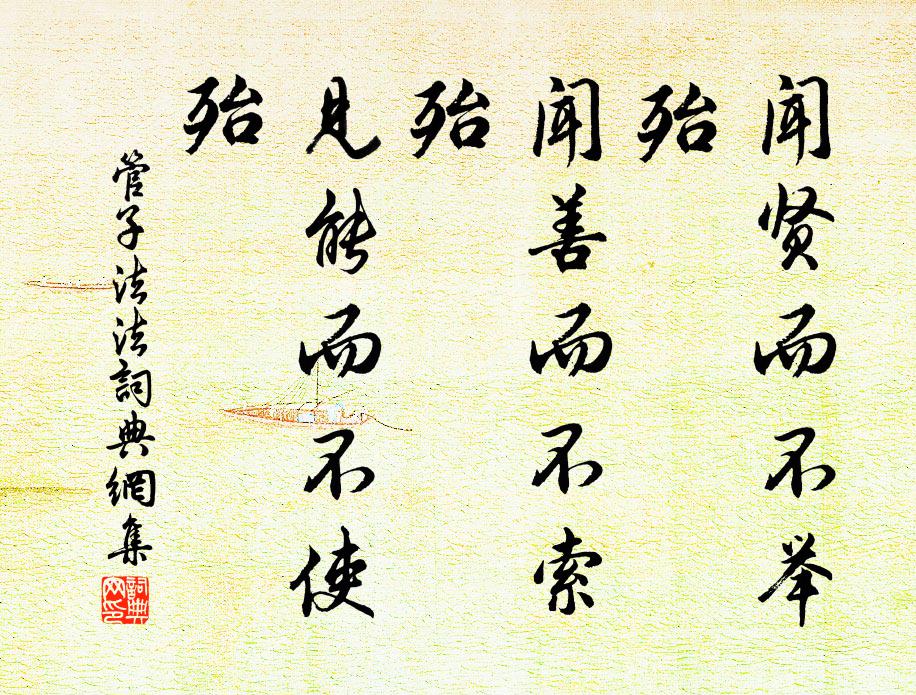 闻贤而不举
殆
闻善而不索
殆
见能而不使
殆
管子法法詞典網集
詞典
网印